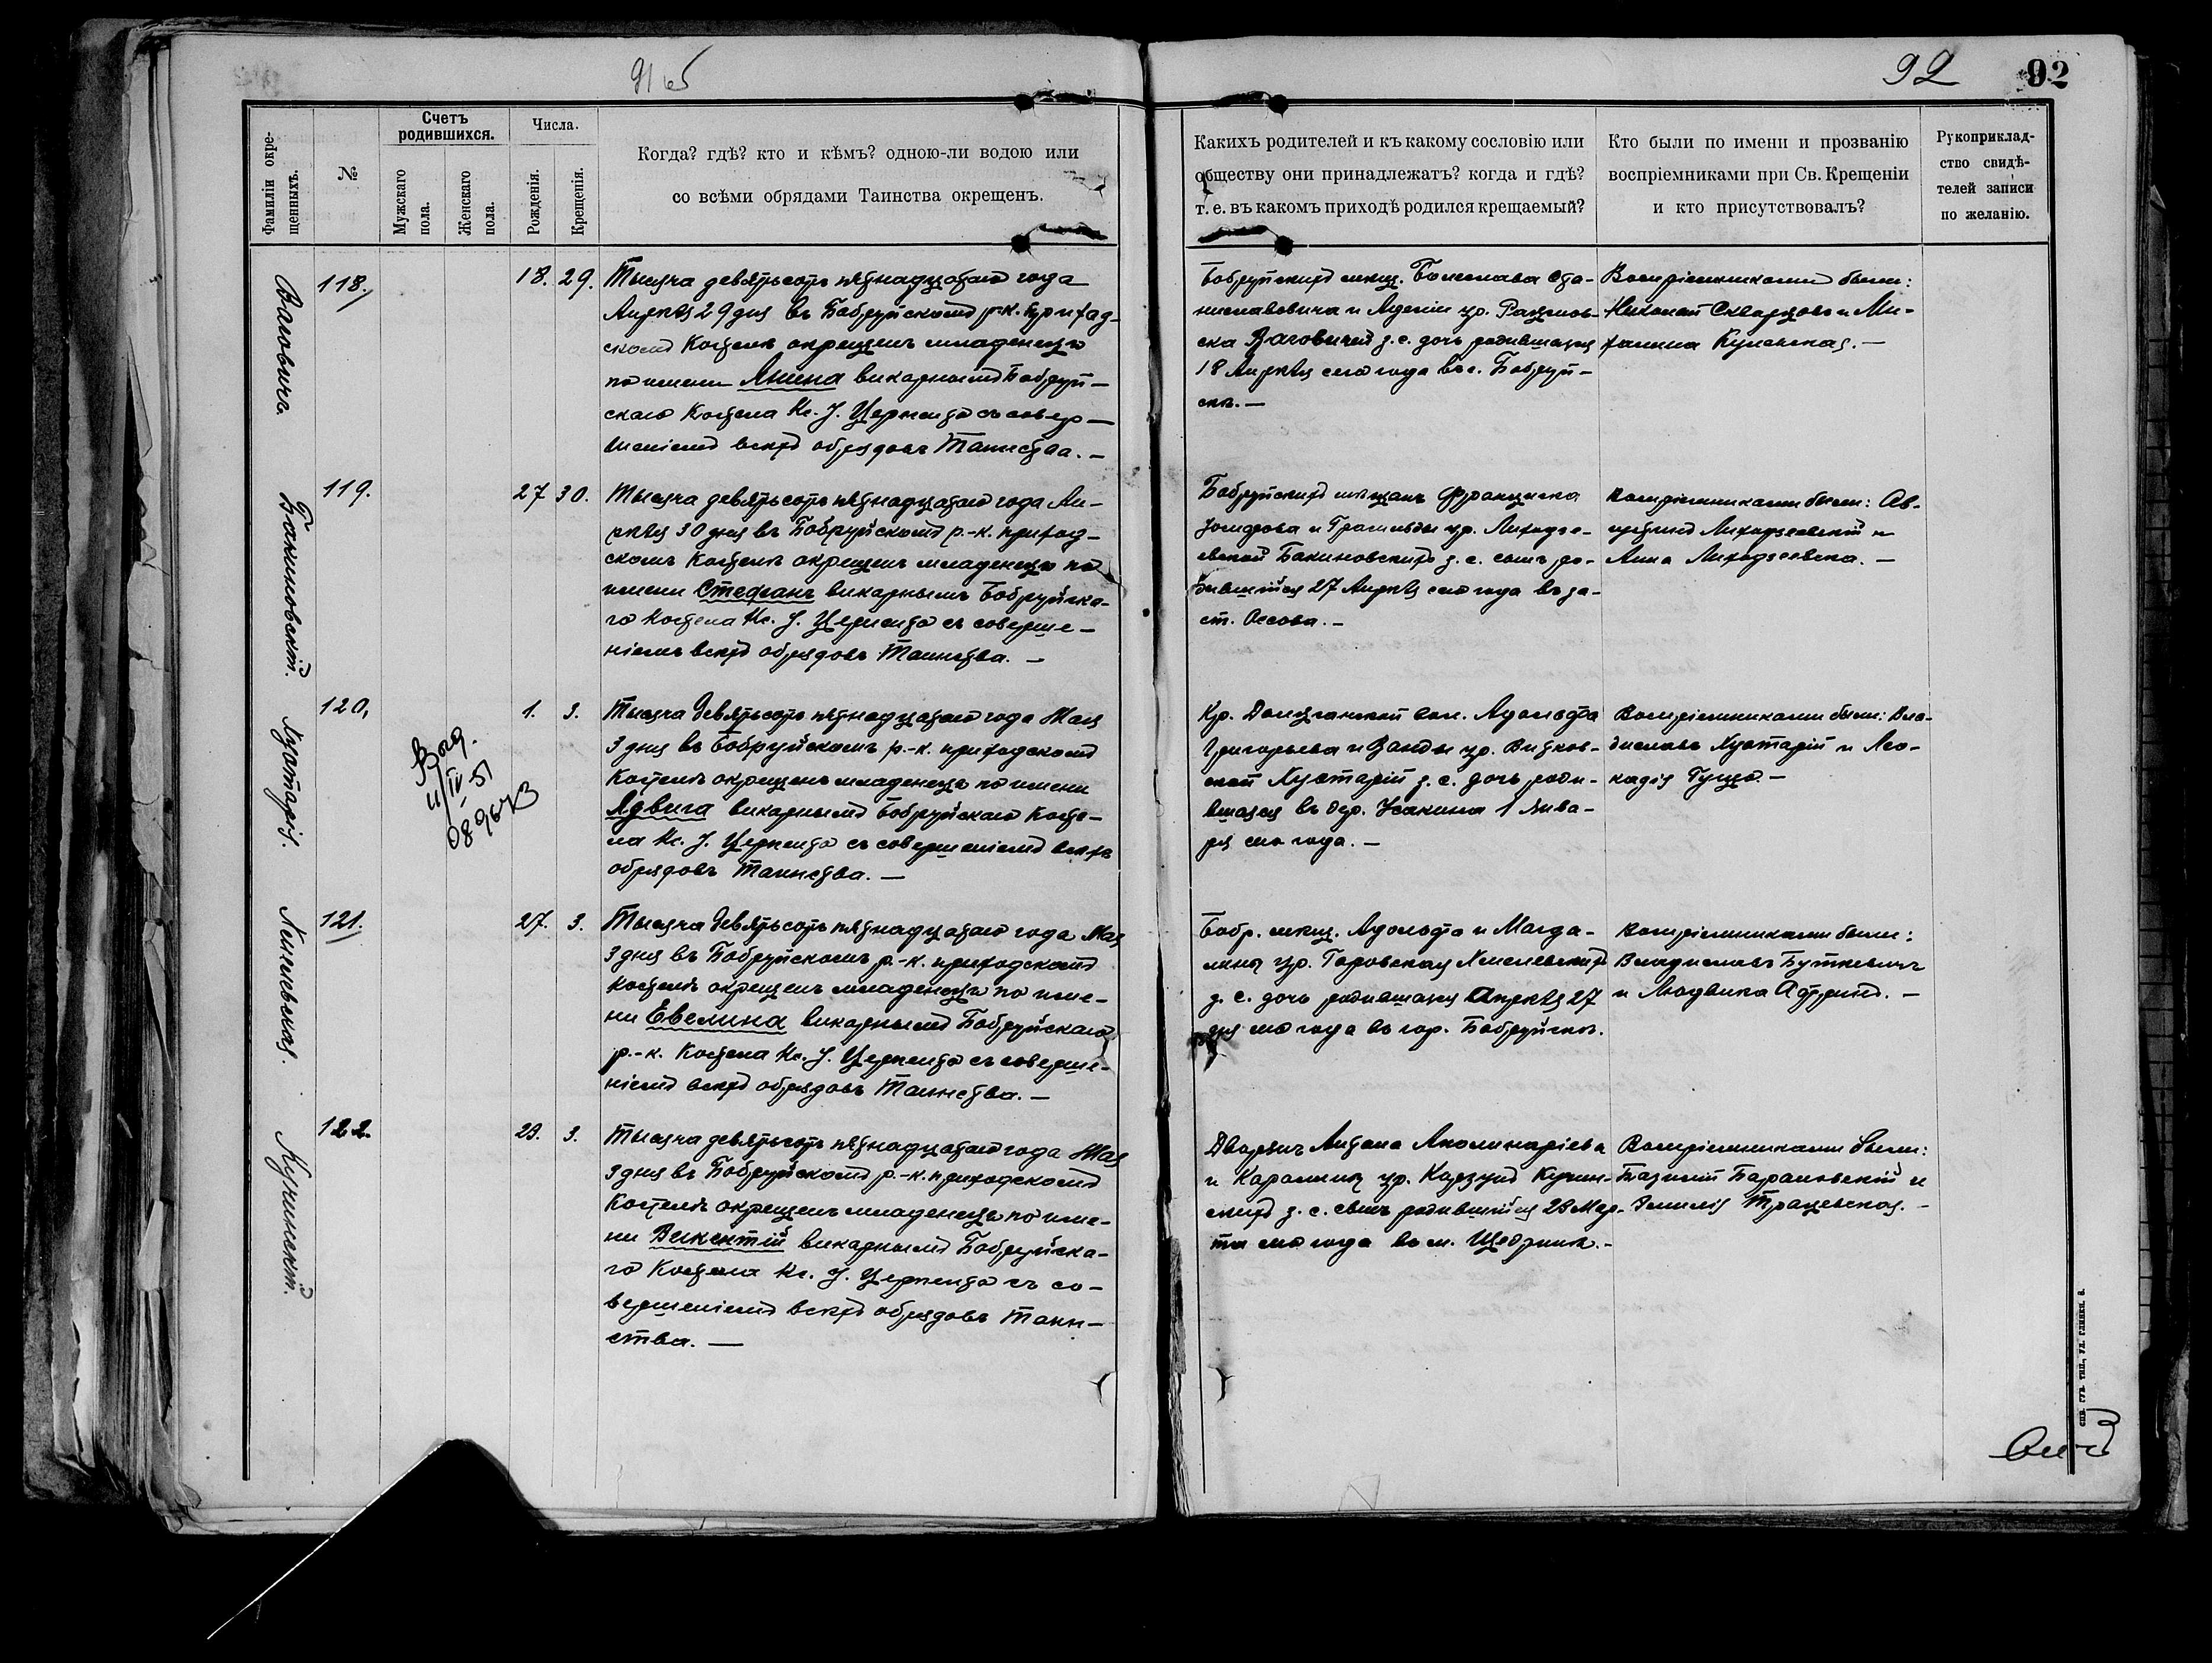 91 об
92
92
Фамиліи окре-
щенныхъ.
№
Счетъ
родившихся.
Мужскаго
пола.
Женскаго
пола.
Числа.
Рожденія.
Крещенія.
Когда? гдѣ? кто и кѣмъ? одною-ли водою или
со всѣми обрядами Таинства окрещенъ.
Какихъ родителей и къ какому сословію или
обществу они принадлежатъ? когда и гдѣ?
т. е. въ какомъ приходѣ родился крещаемый?
Кто были по имени и прозванію
воспріемниками при Св. Крещеніи
и кто присутствовалъ?
Рукоприклад-
ство свидѣ-
телей записи
по желанію.
118.
18. 29.
Тысяча девятьсотъ пятнадцатаго года
Апрѣля 29 дня въ Бобруйскомъ р.-к. приход-
скомъ Костелѣ окрещенъ младенецъ
по имени Янина викарнымъ Бобруй-
скаго Костела Кс. J. Цермента съ совер-
шеніемъ всѣхъ обрядовъ Таинства. —
Бобруйскихъ мѣщ. Болеслава Ста-
ниславовича и ур.
з. с. дочь родившаяся
18 Апрѣля сего года въ г. Бобруй-
скѣ. —
Воспріемниками были:
Николай Скварцовъ и Ми-
халина —
Бакиновскій.
119.
27 30.
Тысяча девятьсотъ пятнадцатаго года Ап-
рѣля 30 дня въ Бобруйскомъ р.-к. приход-
скомъ Костелѣ окрещенъ младенецъ по
имени Стефанъ викарнымъ Бобруйска-
го Костела Кс. J. Цермента съ соверше-
ніемъ всѣхъ обрядовъ Таинства. —
Бобруйскихъ мѣщанъ Франциска
и ур. Лиходзе-
евской Бакиновскихъ з. с. сынъ ро-
дившійся 27 Апрѣля сего года въ за-
ст. Оссова. —
Воспріемниками были: Ав-
густинъ Лиходзеевскій и
Анна Лиходзеевска. —
Хустарій.
120.
Выд.
11/IV-51
1. 3.
Тысяча девятьсотъ пятнадцатаго года Мая
3 дня въ Бобруйскомъ р.-к. приходскомъ
Костелѣ окрещенъ младенецъ по имени
Ядвига викарнымъ Бобруйскаго Косте-
ла Кс. J. Цермента съ совершеніемъ всѣхъ
обрядовъ Таинства. —
Кр. вол. Адольфа
Григорьева и Ванды ур. Витков-
ской Хустарій з. с. дочь роди-
вшаяся въ дер. Усакина 1 Янва-
ря сего года. —
Воспріемниками были: Вла-
диславъ Хустарій и Лео-
кадія Гуща. —
Хмелевская.
121.
27. 3.
Тысяча девятьсотъ пятнадцатаго года Мая
3 дня въ Бобруйскомъ р.-к. приходскомъ
Костелѣ окрещенъ младенецъ по име-
ни Евелина викарнымъ Бобруйскаго
р.-к. Костела Кс. J. Цермента съ соверше-
ніемъ всѣхъ обрядовъ Таинства. —
Бобр. мѣщ. Адольфа и Магда-
лины ур. Горовская Хмелевскихъ
з. с. дочь родившаяся Апрѣля 27
дня сего года въ гор. Бобруйскѣ.
Воспріемниками были:
Владиславъ Буткевичъ
и Людвика —
Кучинскій.
122.
23. 3.
Тысяча девятьсотъ пятнадцатаго года Мая
3 дня въ Бобруйскомъ р.-к. приходскомъ
Костелѣ окрещенъ младенецъ по име-
ни Викентій викарнымъ Бобруйска-
го Костела Кс. J. Цермента съ со-
вершеніемъ всѣхъ обрядовъ Таин-
ства. —
Дворянъ Антона Аполинаріева
и Каролины ур. Кучин-
скихъ з. с. сынъ родившійся 23 Мар-
та сего года въ м. Щедринѣ. —
Воспріемниками были:
Барановскій и
Эмилія Трацевская. —
спб. губ. тип., ул. глинки, 8.